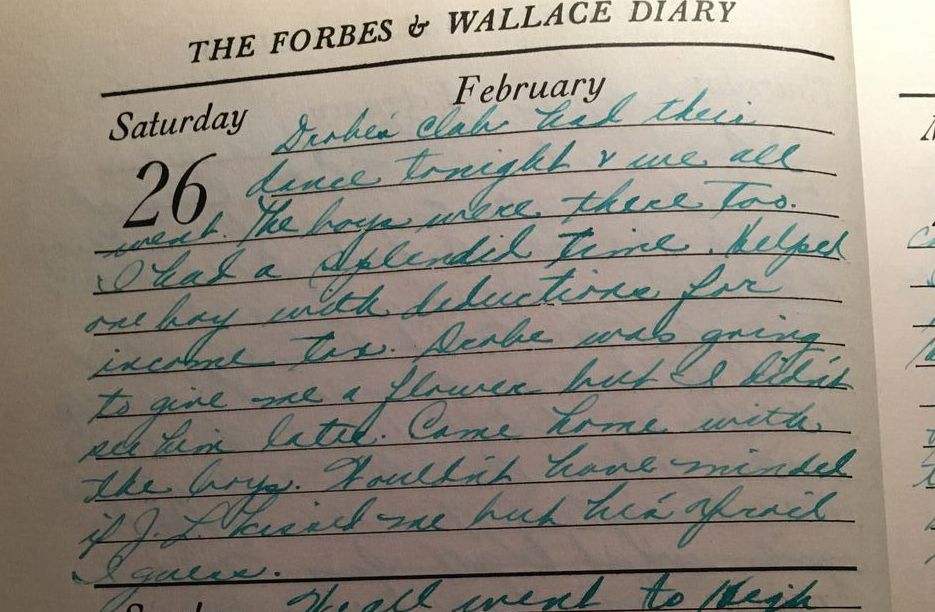 THE FORBES & WALLACE DIARY
February
Saturday
26
Drobe's club had their
dance tonight & we all
went. The boys were there too.
I had a splendid time. Helped
one boy with deductions for
income tax. Drobe was going
to give me a flower but I didn't
see him later. Came home with
the boys. Wouldn't have minded
if J. L. kissed me but he's afraid
I guess.
We all went to High